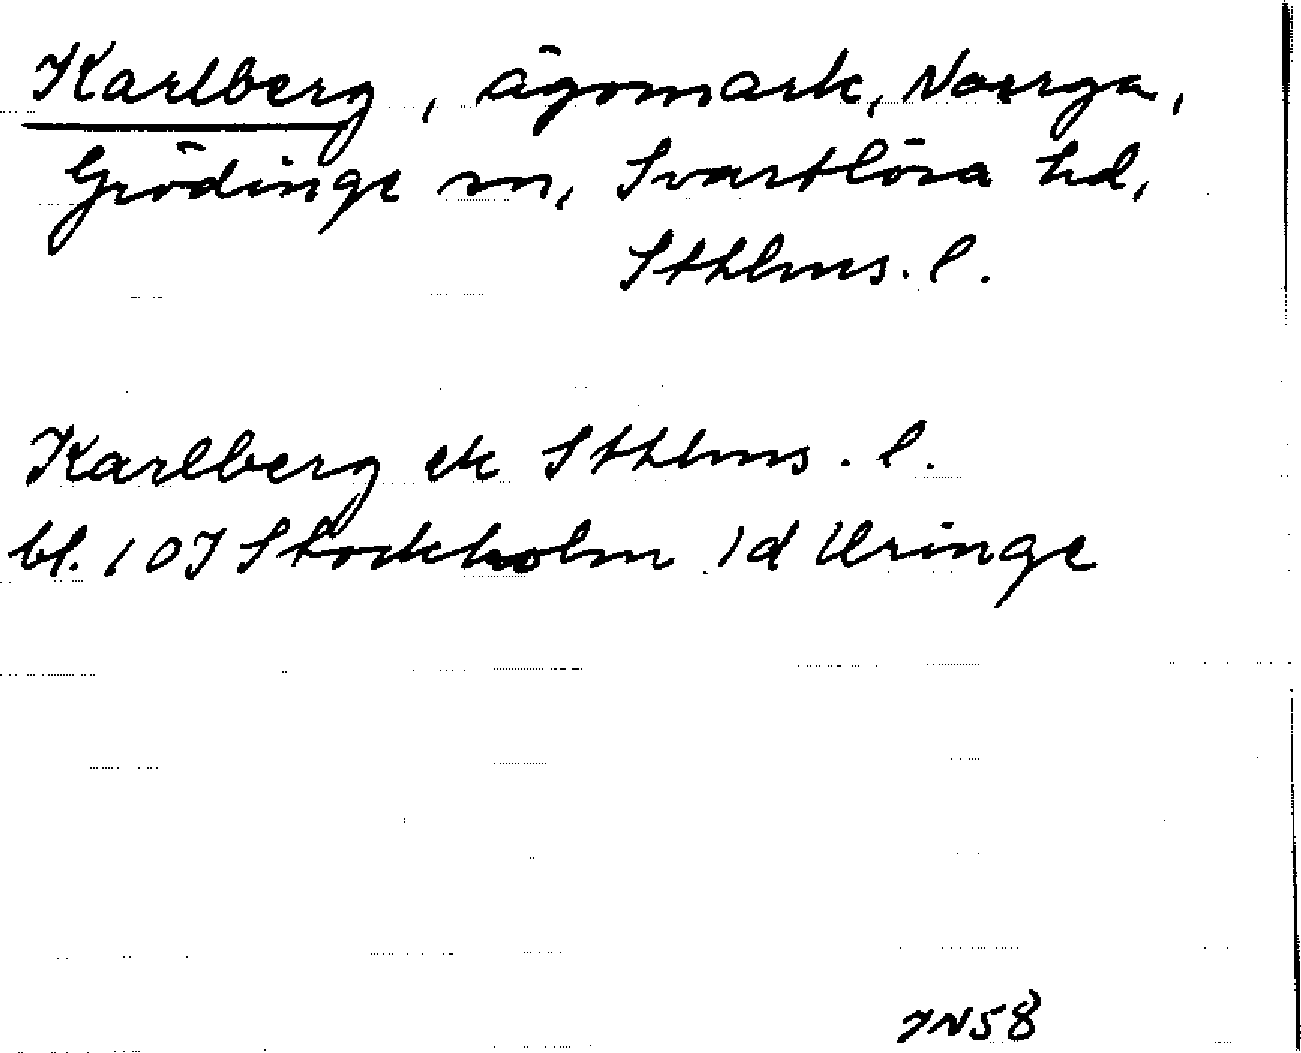 Karlberg, ägomark, Norrga,
Grödinge sn, Svartlösa hd,
Sthlms. l.
Karlberg ek Sthlms. l.
bl. 10I Stockholm 1d Uringe
IN58